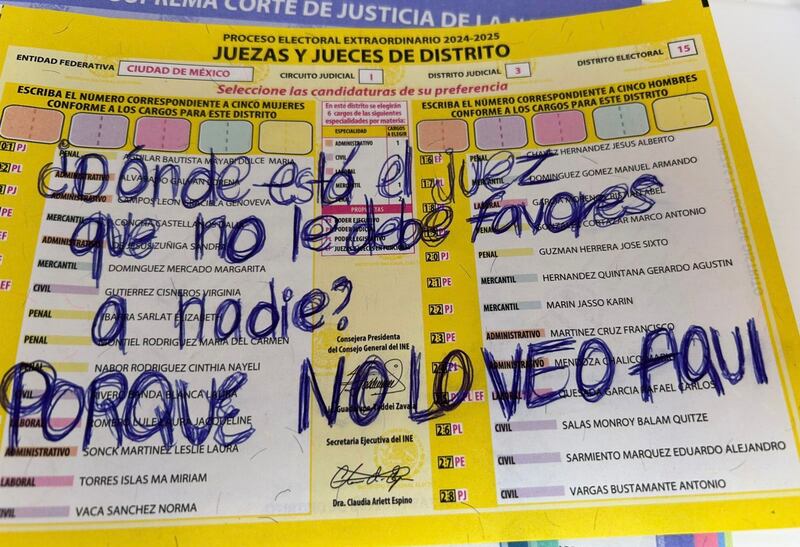 SUPREMA CORTE DE JUSTICIA DE LA N
PROCESO ELECTORAL EXTRAORDINARIO 2024-2025
JUEZAS Y JUECES DE DISTRITO
ENTIDAD FEDERATIVA CIUDAD DE MÉXICO CIRCUITO JUDICIAL I DISTRITO JUDICIAL 3 DISTRITO ELECTORAL 15
Seleccione las candidaturas de su preferencia
ESCRIBA EL NÚMERO CORRESPONDIENTE A CINCO MUJERES
CONFORME A LOS CARGOS PARA ESTE DISTRITO
En este distrito se elegirán
6 cargos de las siguientes
especialidades por materia:
ESPECIALIDAD CARGOS A ELEGIR
ADMINISTRATIVO 1
CIVIL
LABORAL
MERCANTIL 1
PENAL
PROPUESTAS
PODER EJECUTIVO
PODER JUDICIAL
PODER LEGISLATIVO
ESCRIBA EL NÚMERO CORRESPONDIENTE A CINCO HOMBRES
CONFORME A LOS CARGOS PARA ESTE DISTRITO
¿Dónde está el juez
que no le debe favores
a nadie?
PORQUE NO LO VEO AQUI
01 PJ PENAL AGUILAR BAUTISTA MAYABI DULCE MARIA
02 PL ADMINISTRATIVO
PENAL CAMPOS LEON GRACIELA GENOVEVA
MERCANTIL CONCHA CASTELLANOS
ADMINISTRATIVO DE JESUS ZUÑIGA SANDRA
MERCANTIL DOMINGUEZ MERCADO MARGARITA
CIVIL GUTIERREZ CISNEROS VIRGINIA
PENAL IBARRA SARLAT ELIZABETH
PENAL MONTIEL RODRIGUEZ MARIA DEL CARMEN
PENAL NABOR RODRIGUEZ CINTHIA NAYELI
CIVIL RIVERO BANDA BLANCA LAURA
LABORAL ROMERO LULE LAURA JAQUELINE
ADMINISTRATIVO SONCK MARTINEZ LESLIE LAURA
LABORAL TORRES ISLAS MA MIRIAM
CIVIL VACA SANCHEZ NORMA
Consejera Presidenta
del Consejo General del INE
Guadalupe Taddei Zavala
Secretaria Ejecutiva del INE
Dra. Claudia Arlett Espino
16 EF PENAL CHAVEZ HERNANDEZ JESUS ALBERTO
17 MERCANTIL DOMINGUEZ GOMEZ MANUEL ARMANDO
18 LABORAL GARCIA MORENO
19 CORTAZAR MARCO ANTONIO
20 PJ PENAL GUZMAN HERRERA JOSE SIXTO
21 PE MERCANTIL HERNANDEZ QUINTANA GERARDO AGUSTIN
22 PJ MERCANTIL MARIN JASSO KARIN
23 PE ADMINISTRATIVO MARTINEZ CRUZ FRANCISCO
ADMINISTRATIVO MENDOZA CHALICO
PL EF QUESADA GARCIA RAFAEL CARLOS
26 PL CIVIL SALAS MONROY BALAM QUITZE
27 PE CIVIL SARMIENTO MARQUEZ EDUARDO ALEJANDRO
28 PJ CIVIL VARGAS BUSTAMANTE ANTONIO